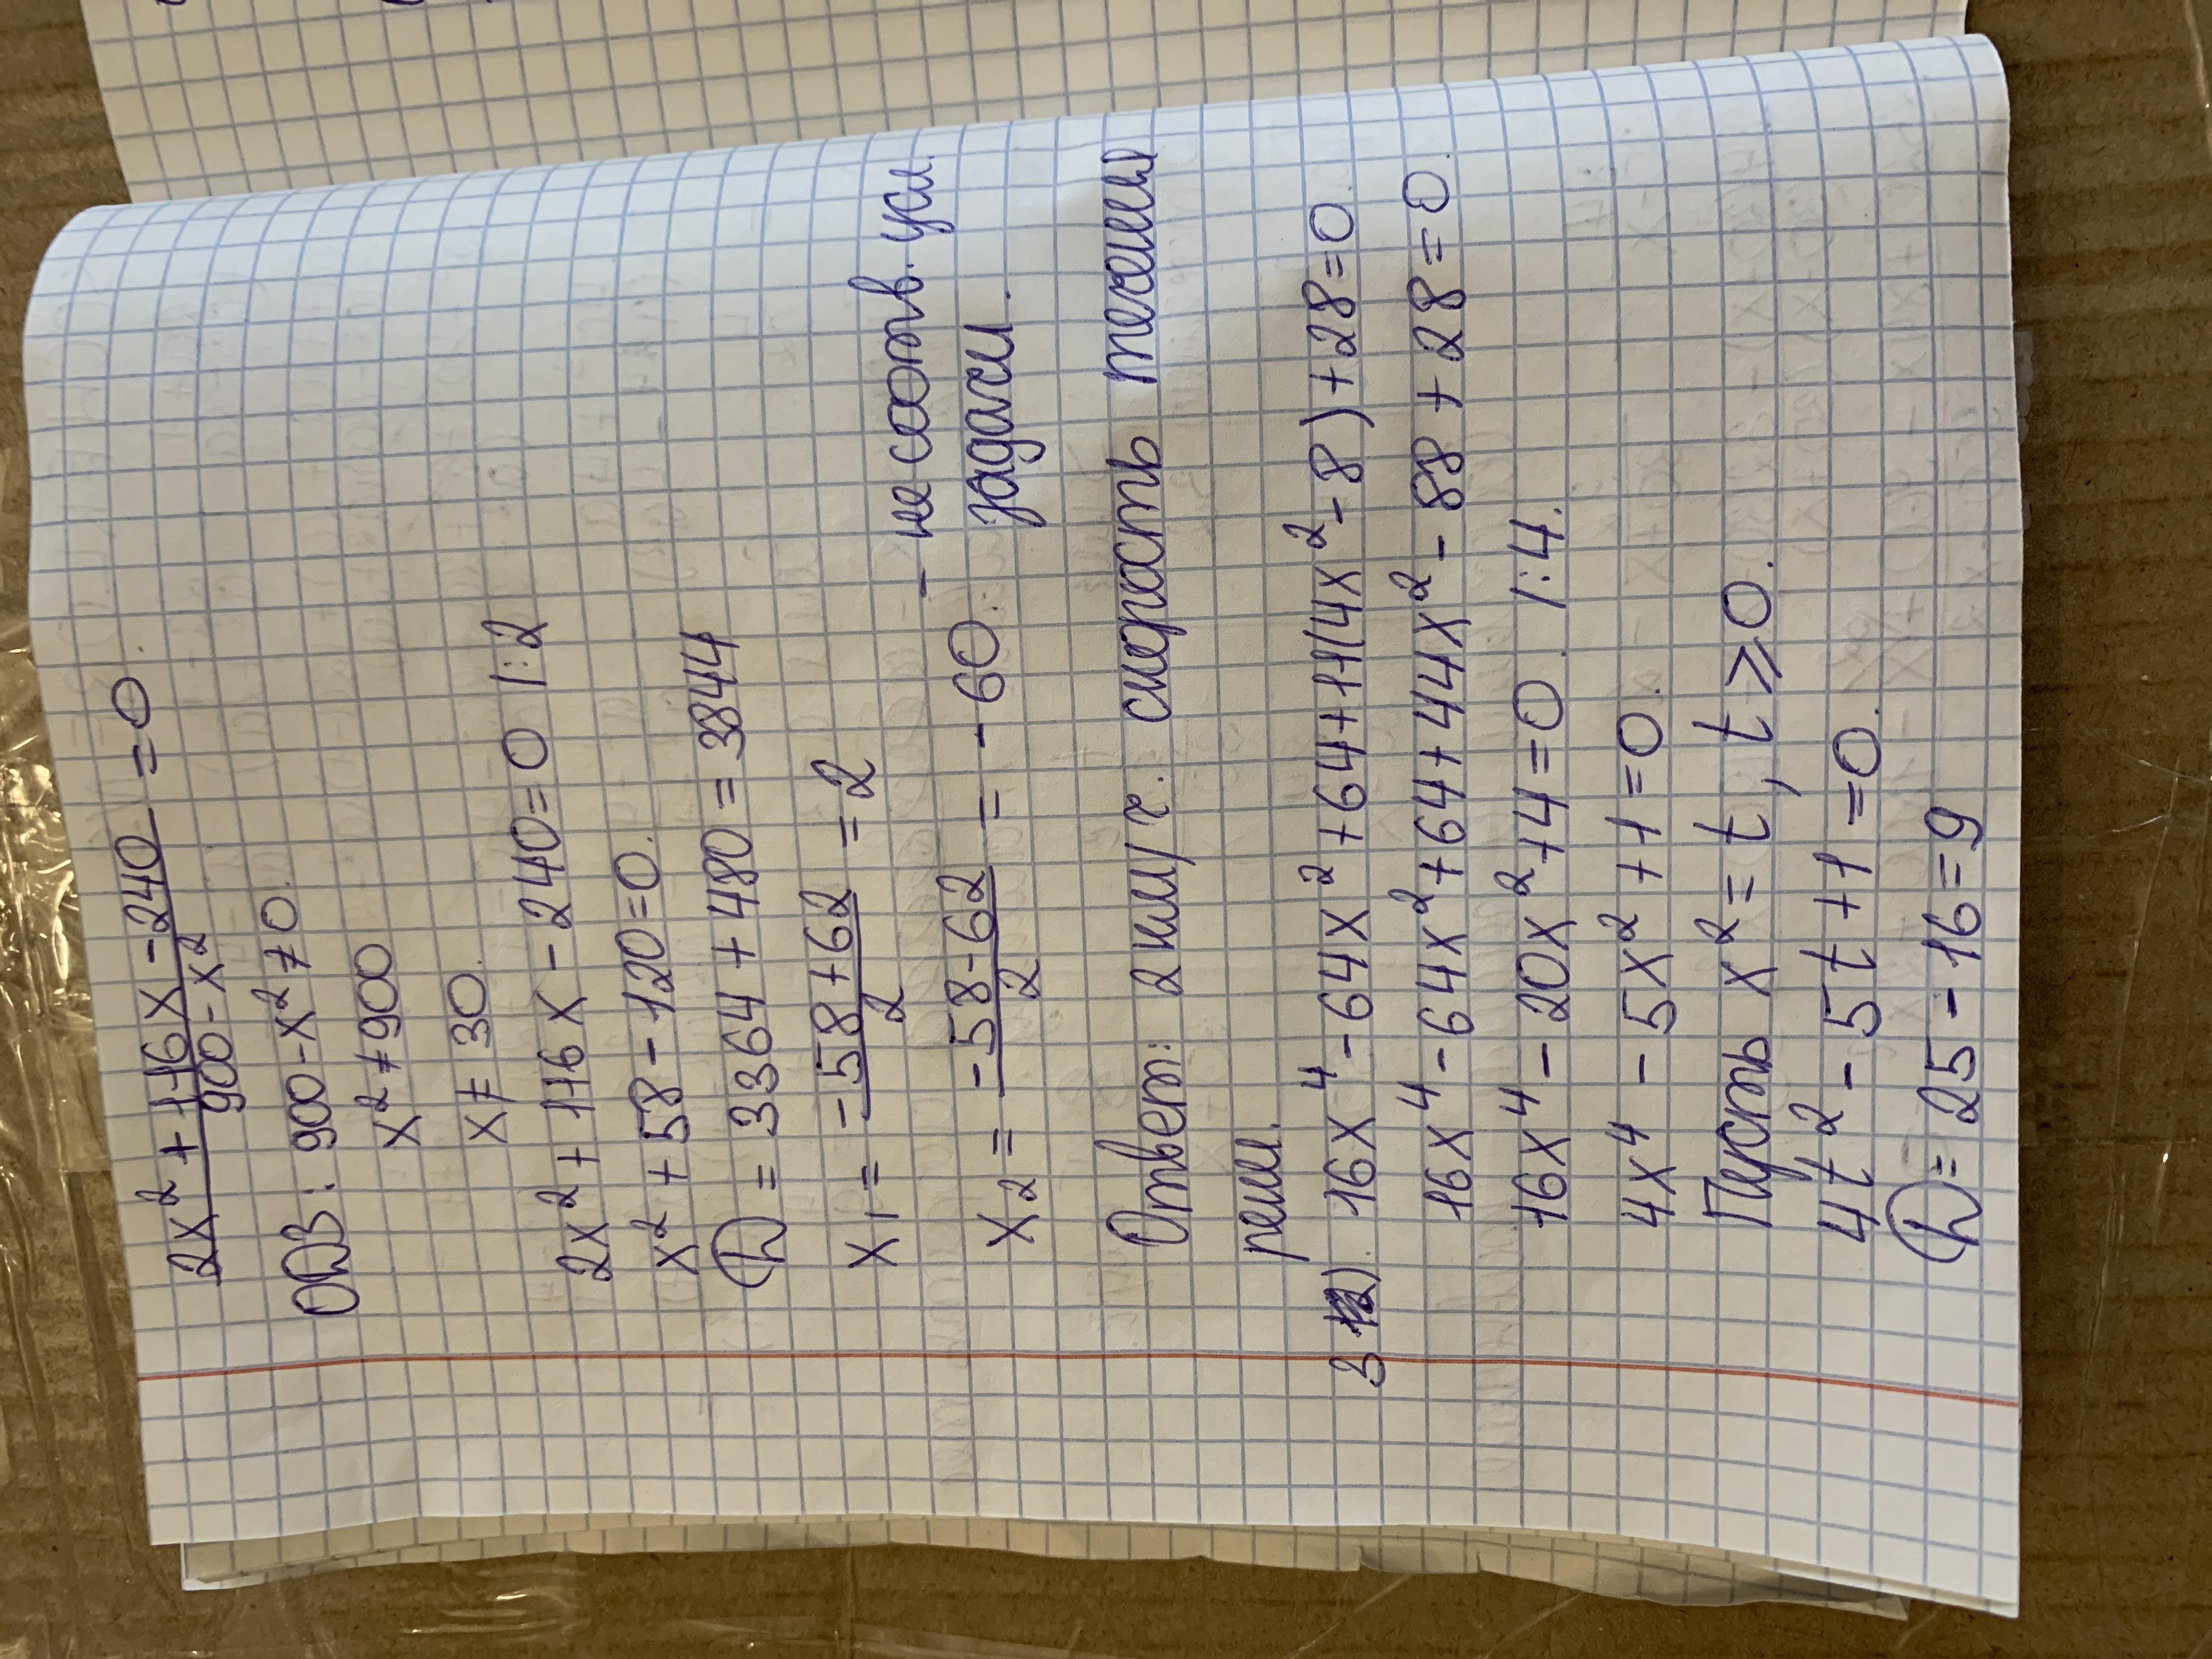 2x² + 116x - 240 / 900 - x² = 0.
ОДЗ: 900 - x² ≠ 0.
x² ≠ 900
x ≠ 30.
2x² + 116x - 240 = 0 |:2
x² + 58 - 120 = 0.
D = 3364 + 480 = 3844
x₁ = -58 + 62 / 2 = 2
x₂ = -58 - 62 / 2 = -60. - не соотв. усл. задачи.
Ответ: 2 км/ч. скорость течения
реки.
3) 16x⁴ - 64x² + 64 + 11(4x² - 8) + 28 = 0.
16x⁴ - 64x² + 64 + 44x² - 88 + 28 = 0.
16x⁴ - 20x² + 4 = 0. |:4.
4x⁴ - 5x² + 1 = 0.
Пусть x² = t, t ⩾ 0.
4t² - 5t + 1 = 0.
D = 25 - 16 = 9